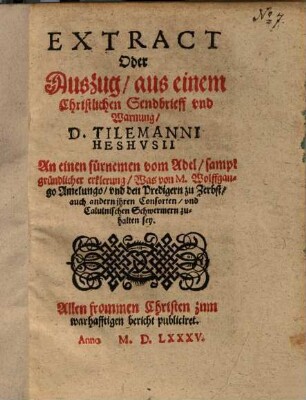 No 7.
EXTRACT
Oder
Auszug / aus einem
Christlichen Sendbrieff vnd
Warnung /
D. TILEMANNI
HESHVSII
An einen fürnemen vom Adel / sampt
gründlicher erklerung / Was von M. Wolffgan-
go Amelungo / vnd den Predigern zu Zerbst /
auch andern jhren Consorten / vnd
Caluinischen Schwermern zu-
halten sey.
Allen frommen Christen zum
warhafftigen bericht publiciret.
Anno M. D. LXXXV.